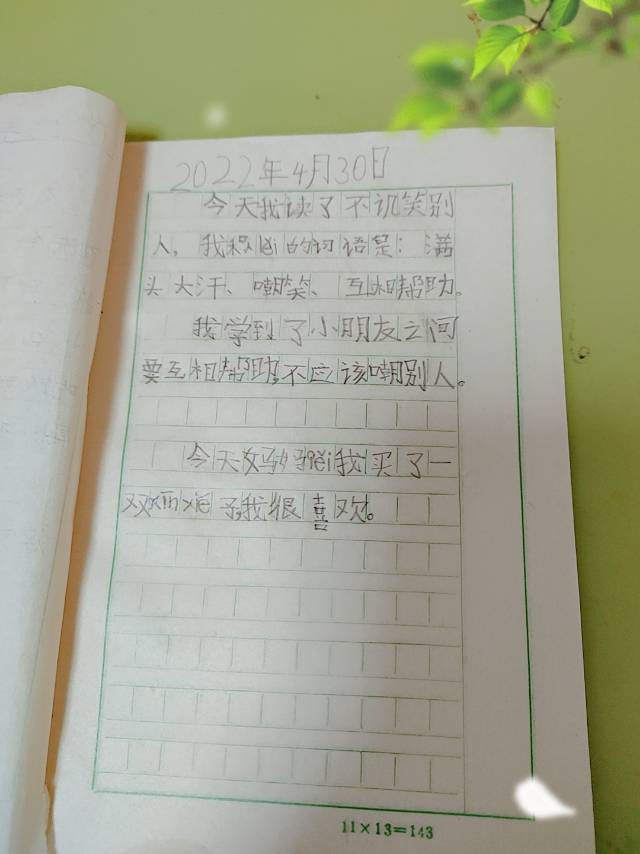 2022年4月30日
今天我读了不讥笑别
人,我积lěi的词语是:满
头大汗、嘲笑、互相帮助。
我学到了小朋友之间
要互相帮助,不应该嘲别人。
今天妈妈gěi我买了一
双xīn xié子,我很喜欢。
11×13=143